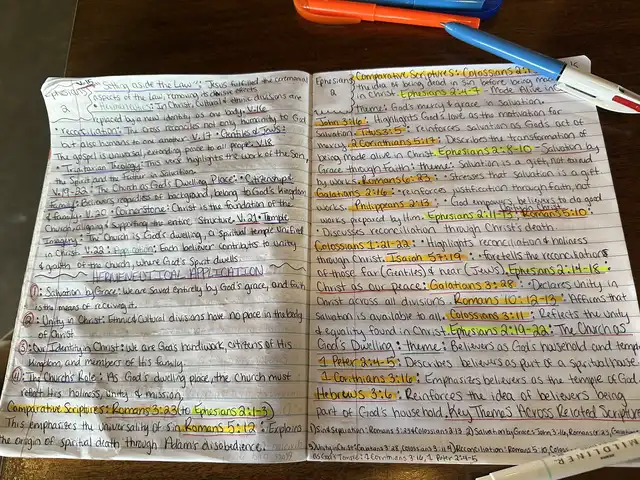 Ephesians 2
V.15
"Setting aside the Law": Jesus fulfilled the ceremonial
aspects of the Law, removing its divisive effects
• New Humanity: In Christ, Cultural & ethnic divisions are
replaced by a new identity as one body. V.16
• reconciliation: The cross reconciles not only humanity to God
but also humans to one another. V.17 • Gentiles & Jews:
The gospel is universal, extending peace to all people. V.18
• Trinitarian Theology: This verse highlights the work of the Son,
the Spirit, and the Father in Salvation.
V.19-22: The Church as God's Dwelling Place: • Citizenship &
Family: Believers, regardless of background, belong to God's Kingdom
& family. V.20 • Cornerstone: Christ is the foundation of the
Church, aligning & supporting the entire structure. V.21 • Temple
Imagery: The Church is God's dwelling, a spiritual temple unified
in Christ. V.22: Application: Each believer contributes to unity
& growth of the church, where God's Spirit dwells.
HERMENEUTICAL APPLICATION
1: Salvation by Grace: We are saved entirely by God's grace, and faith
is the means of receiving it.
2: Unity in Christ: Ethnic & Cultural divisions have no place in the body
of Christ
3: Our Identity in Christ: We are God's handiwork, citizens of His
Kingdom, and members of His family.
4: The Church's Role: As God's dwelling place, the Church must
reflect His holiness, unity & mission.
Comparative Scriptures: Romans 3:23 (to Ephesians 2:1-3)
This emphasizes the universality of sin Romans 5:12: Explains
the origin of spiritual death through Adam's disobedience.
Ephesians 2
Comparative Scriptures: Colossians 2:1
the idea to being dead in sin before being made
in Christ. Ephesians 2:4-7 Made Alive in C
Theme: God's mercy & grace in salvation.
John 3:16: Highlights God's love as the motivation for
Salvation. Titus 3:5: reinforces salvation as God's act of
mercy. 2 Corinthians 5:17: Describes the transformation of
being made alive in Christ. Ephesians 2:8-10 - Salvation by
Grace through Faith: Theme: Salvation is a gift, not earned
by works. Romans 6:23: Stresses that salvation is a gift
Galatians 2:16: reinforces justification through faith, not
works. Philippians 2:13: God empowers believers to do good
works prepared by Him. Ephesians 2:11-13 Romans 5:10:
Discusses reconciliation through Christ's death
Colossians 1:21-22: Highlights reconciliation & holiness
through Christ. Isaiah 57:19: foretells the reconciliation
of those far (Gentiles) & near (Jews). Ephesians 2:14-18:
Christ as our peace: Galatians 3:28: Declares unity in
Christ across all divisions. Romans 10:12-13: Affirms that
salvation is available to all. Colossians 3:11: Reflects the unity
& equality found in Christ. Ephesians 2:19-22: The Church as
God's Dwelling: Theme: Believers as God's household and temple
1 Peter 2:4-5: Describes believers as part of a spiritual house
1 Corinthians 3:16: Emphasizes believers as the temple of God
Hebrews 3:6: Reinforces the idea of believers being
part of God's household. Key Themes Across Related Scriptures
1) Sin & Separation: Romans 3:23 & Colossians 2:13 2) Salvation by Grace: John 3:16, Romans 6:23,
3) Unity in Christ: Galatians 3:28, Colossians 3:11 4) Reconciliation: Romans 5:10,
as God's Temple: 1 Corinthians 3:16, 1 Peter 2:4-5
MILDLINER